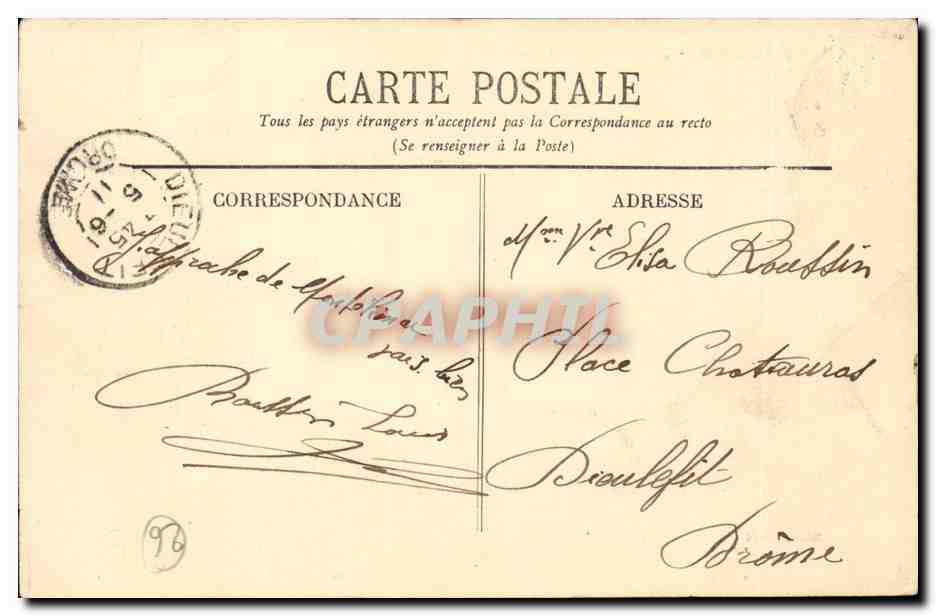 CARTE POSTALE
Tous les pays étrangers n'acceptent pas la Correspondance au recto
(Se renseigner à la Poste)
CORRESPONDANCE
ADRESSE
DIEULEFIT
DROME
11
5 - 6
25
J'approche de
vais bien
Roussin Louis
Mme Vve Elisa Roussin
Place Chateauras
Dieulefit
Drôme
CPAPHIL
96